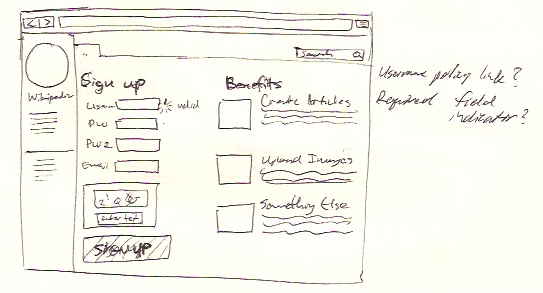 Search
Wikipedia
Sign up
User
valid
PW
PW2
Email
enter text
SIGN UP
Benefits
Create Articles
Upload Images
Something Else
Username policy link?
Required field
indicator?